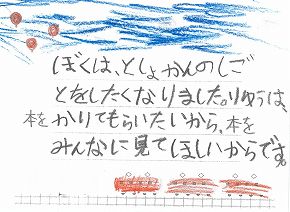 ぼくは、としょかんのしご
とをしたくなりました。りゆうは、
本をかりてもらいたいから、本を
みんなに見てほしいからです。